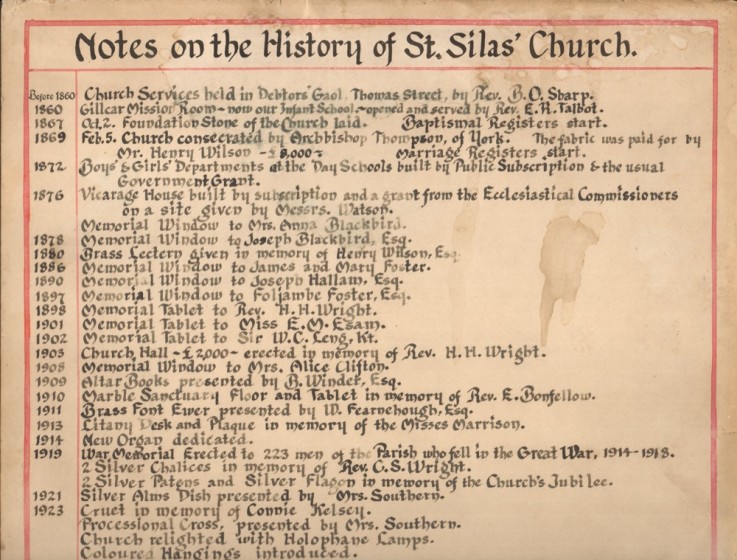 Notes on the History of St. Silas' Church.
Before 1860 Church Services held in Debtors' Gaol, Thomas Street, by Rev. B. O. Sharp.
1860 Gillcar Mission Room - now our Infant School - opened and served by Rev. E. R. Talbot.
1867 Oct. 2. Foundation Stone of the Church laid. Baptismal Registers start.
1869 Feb. 5. Church consecrated by Archbishop Thompson, of York. The fabric was paid for by
Mr. Henry Wilson - £8,000 - Marriage Registers start.
1872 Boys' & Girls' Departments at the Day Schools built by Public Subscription & the usual
Government Grant.
1876 Vicarage House built by subscription and a grant from the Ecclesiastical Commissioners
on a site given by Messrs. Watson.
Memorial Window to Mrs. Anna Blackbird.
1878 Memorial Window to Joseph Blackbird, Esq.
1880 Brass Lectern given in memory of Henry Wilson, Esq.
1886 Memorial Window to James and Mary Foster.
1890 Memorial Window to Joseph Hallam, Esq.
1897 Memorial Window to Foljambe Foster, Esq.
1898 Memorial Tablet to Rev. H. H. Wright.
1901 Memorial Tablet to Miss E. M. Esam.
1902 Memorial Tablet to Sir W. C. Leng, Kt.
1903 Church Hall - £2,000 - erected in memory of Rev. H. H. Wright.
1908 Memorial Window to Mrs. Alice Clifton.
1909 Altar Books presented by B. Winder, Esq.
1910 Marble Sanctuary Floor and Tablet in memory of Rev. E. Bonfellow.
1911 Brass Font Ewer presented by W. Fearnehough, Esq.
1913 Litany Desk and Plaque in memory of the Misses Marrison.
1914 New Organ dedicated.
1919 War Memorial Erected to 223 men of the Parish who fell in the Great War, 1914-1918.
2 Silver Chalices in memory of Rev. C. S. Wright.
2 Silver Patens and Silver Flagon in memory of the Church's Jubilee.
1921 Silver Alms Dish presented by Mrs. Southern.
1923 Cruet in memory of Connie Kelsey.
Processional Cross, presented by Mrs. Southern.
Church relighted with Holophane Lamps.
Coloured Hangings introduced.